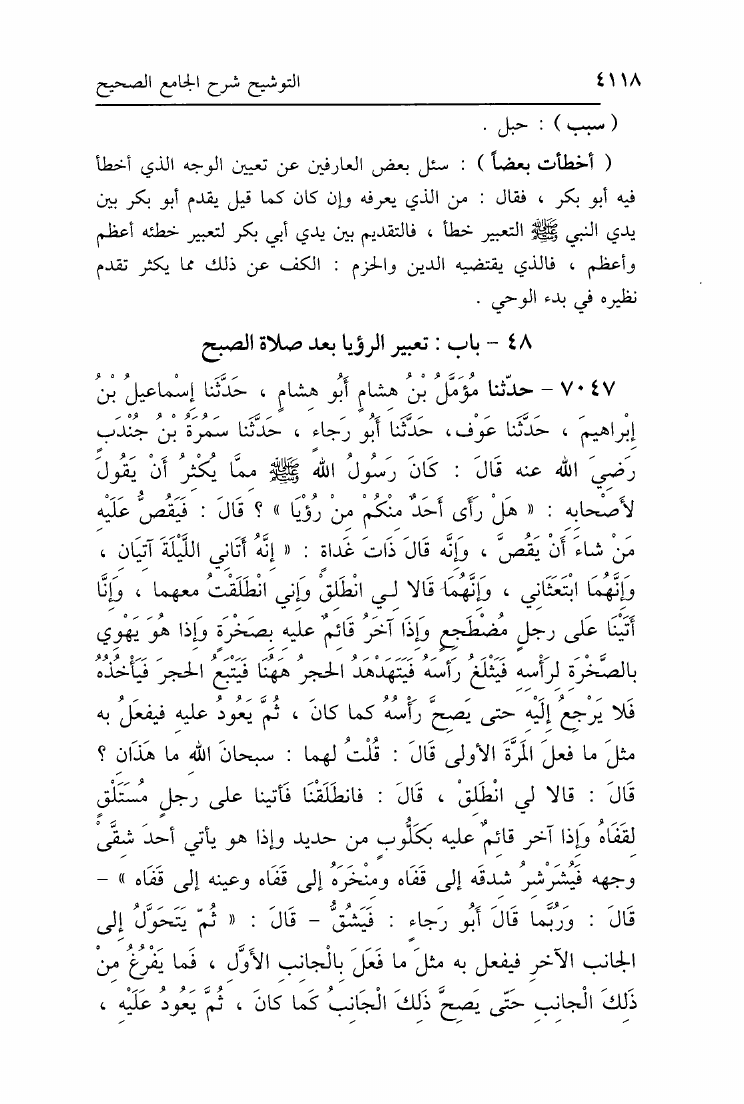 ٤١١٨ التوشيح شرح الجامع الصحيح
( سبب ) : حبل .
( أخطأت بعضاً ) : سئل بعض العارفين عن تعيين الوجه الذي أخطأ
فيه أبو بكر ، فقال : من الذي يعرفه وإن كان كما قيل يقدم أبو بكر بين
يدي النبي ﷺ التعبير خطأ ، فالتقديم بين يدي أبي بكر لتعبير خطئه أعظم
وأعظم ، فالذي يقتضيه الدين والحزم : الكف عن ذلك مما يكثر تقدم
نظيره في بدء الوحي .
٤٨ - باب : تعبير الرؤيا بعد صلاة الصبح
٧٠٤٧ - حدّثنا مُؤَمَّلُ بْنُ هِشامٍ أَبُو هشامٍ ، حَدَّثَنا إِسْماعيلُ بْنُ
إبْراهيمَ ، حَدَّثَنا عَوْف، حَدَّثَنا أَبُو رَجاءٍ ، حَدَّثَنا سَمُرَةُ بْنُ جُنْدَبٍ
رَضِيَ الله عنه قالَ : كَانَ رَسُولُ الله ﷺ مِمَّا يُكْثِرُ أَنْ يَقُولَ
لأَصْحابِهِ : « هَلْ رَأَى أَحَدٌ مِنْكُمْ مِنْ رُؤْيَا » ؟ قَالَ : فَيَقُصُّ عَلَيْهِ
مَنْ شاءَ أَنْ يَقُصَّ ، وَإنَّه قَالَ ذَاتَ غَداةٍ : « إنَّهُ أَتاني اللَّيْلَةَ آتِيَانِ ،
وَإِنَّهُمَا ابْتَعَثَاني ، وَإِنَّهُمَا قالا لِي انْطَلِقْ وَإني انْطَلَقْتُ معهما ، وَإنَّا
أَتَيْنَا عَلى رَجلٍ مُضْطَجِعٍ وَإِذَا آخَرُ قائِمٌ عليهِ بِصَخْرَةٍ وَإذا هُوَ يَهْوِي
بالصَّخْرَةِ لرَأسِهِ فَيَثْلَغُ رَأسَهُ فَيَتَهَدْهَدُ الحجرُ هَهُنَا فَيَتْبَعُ الحجرَ فَيَأْخُذُهُ
فَلا يَرْجِعُ إِلَيْهِ حتى يَصِحَّ رَأسُهُ كما كانَ ، ثُمَّ يَعُودُ عليهِ فيفعلُ به
مثلَ ما فعلَ المَرَّةَ الأولى قَالَ : قُلْتُ لهما : سبحانَ اللهِ ما هذَانِ ؟
قَالَ : قالا لي انْطَلِقْ ، قَالَ : فانطَلَقْنَا فَأتينا على رجلٍ مُسْتَلْقٍ
لِقَفَاهُ وَإذا آخر قائِمٌ عليه بَكَلُّوبٍ من حديد وإذا هو يأتي أحدَ شقَّىْ
وجهه فَيُشَرْشرُ شدقَه إلى قَفاه ومنْخَرَهُ إلى قَفَاه وعينه إلى قفاه » -
قَالَ : وَرُبَّما قَالَ أَبُو رَجاءٍ : فَيَشُقُّ - قَالَ : « ثُمّ يَتَحَوَّلُ إلى
الجانب الآخرِ فيفعل به مثلَ ما فَعَلَ بِالْجانِبِ الأوَّلِ ، فَما يَفْرُغُ مِنْ
ذَلِكَ الْجانِبِ حَتّى يَصِحَّ ذَلِكَ الْجَانِبُ كَما كانَ ، ثُمَّ يَعُودُ عَلَيْهِ ،